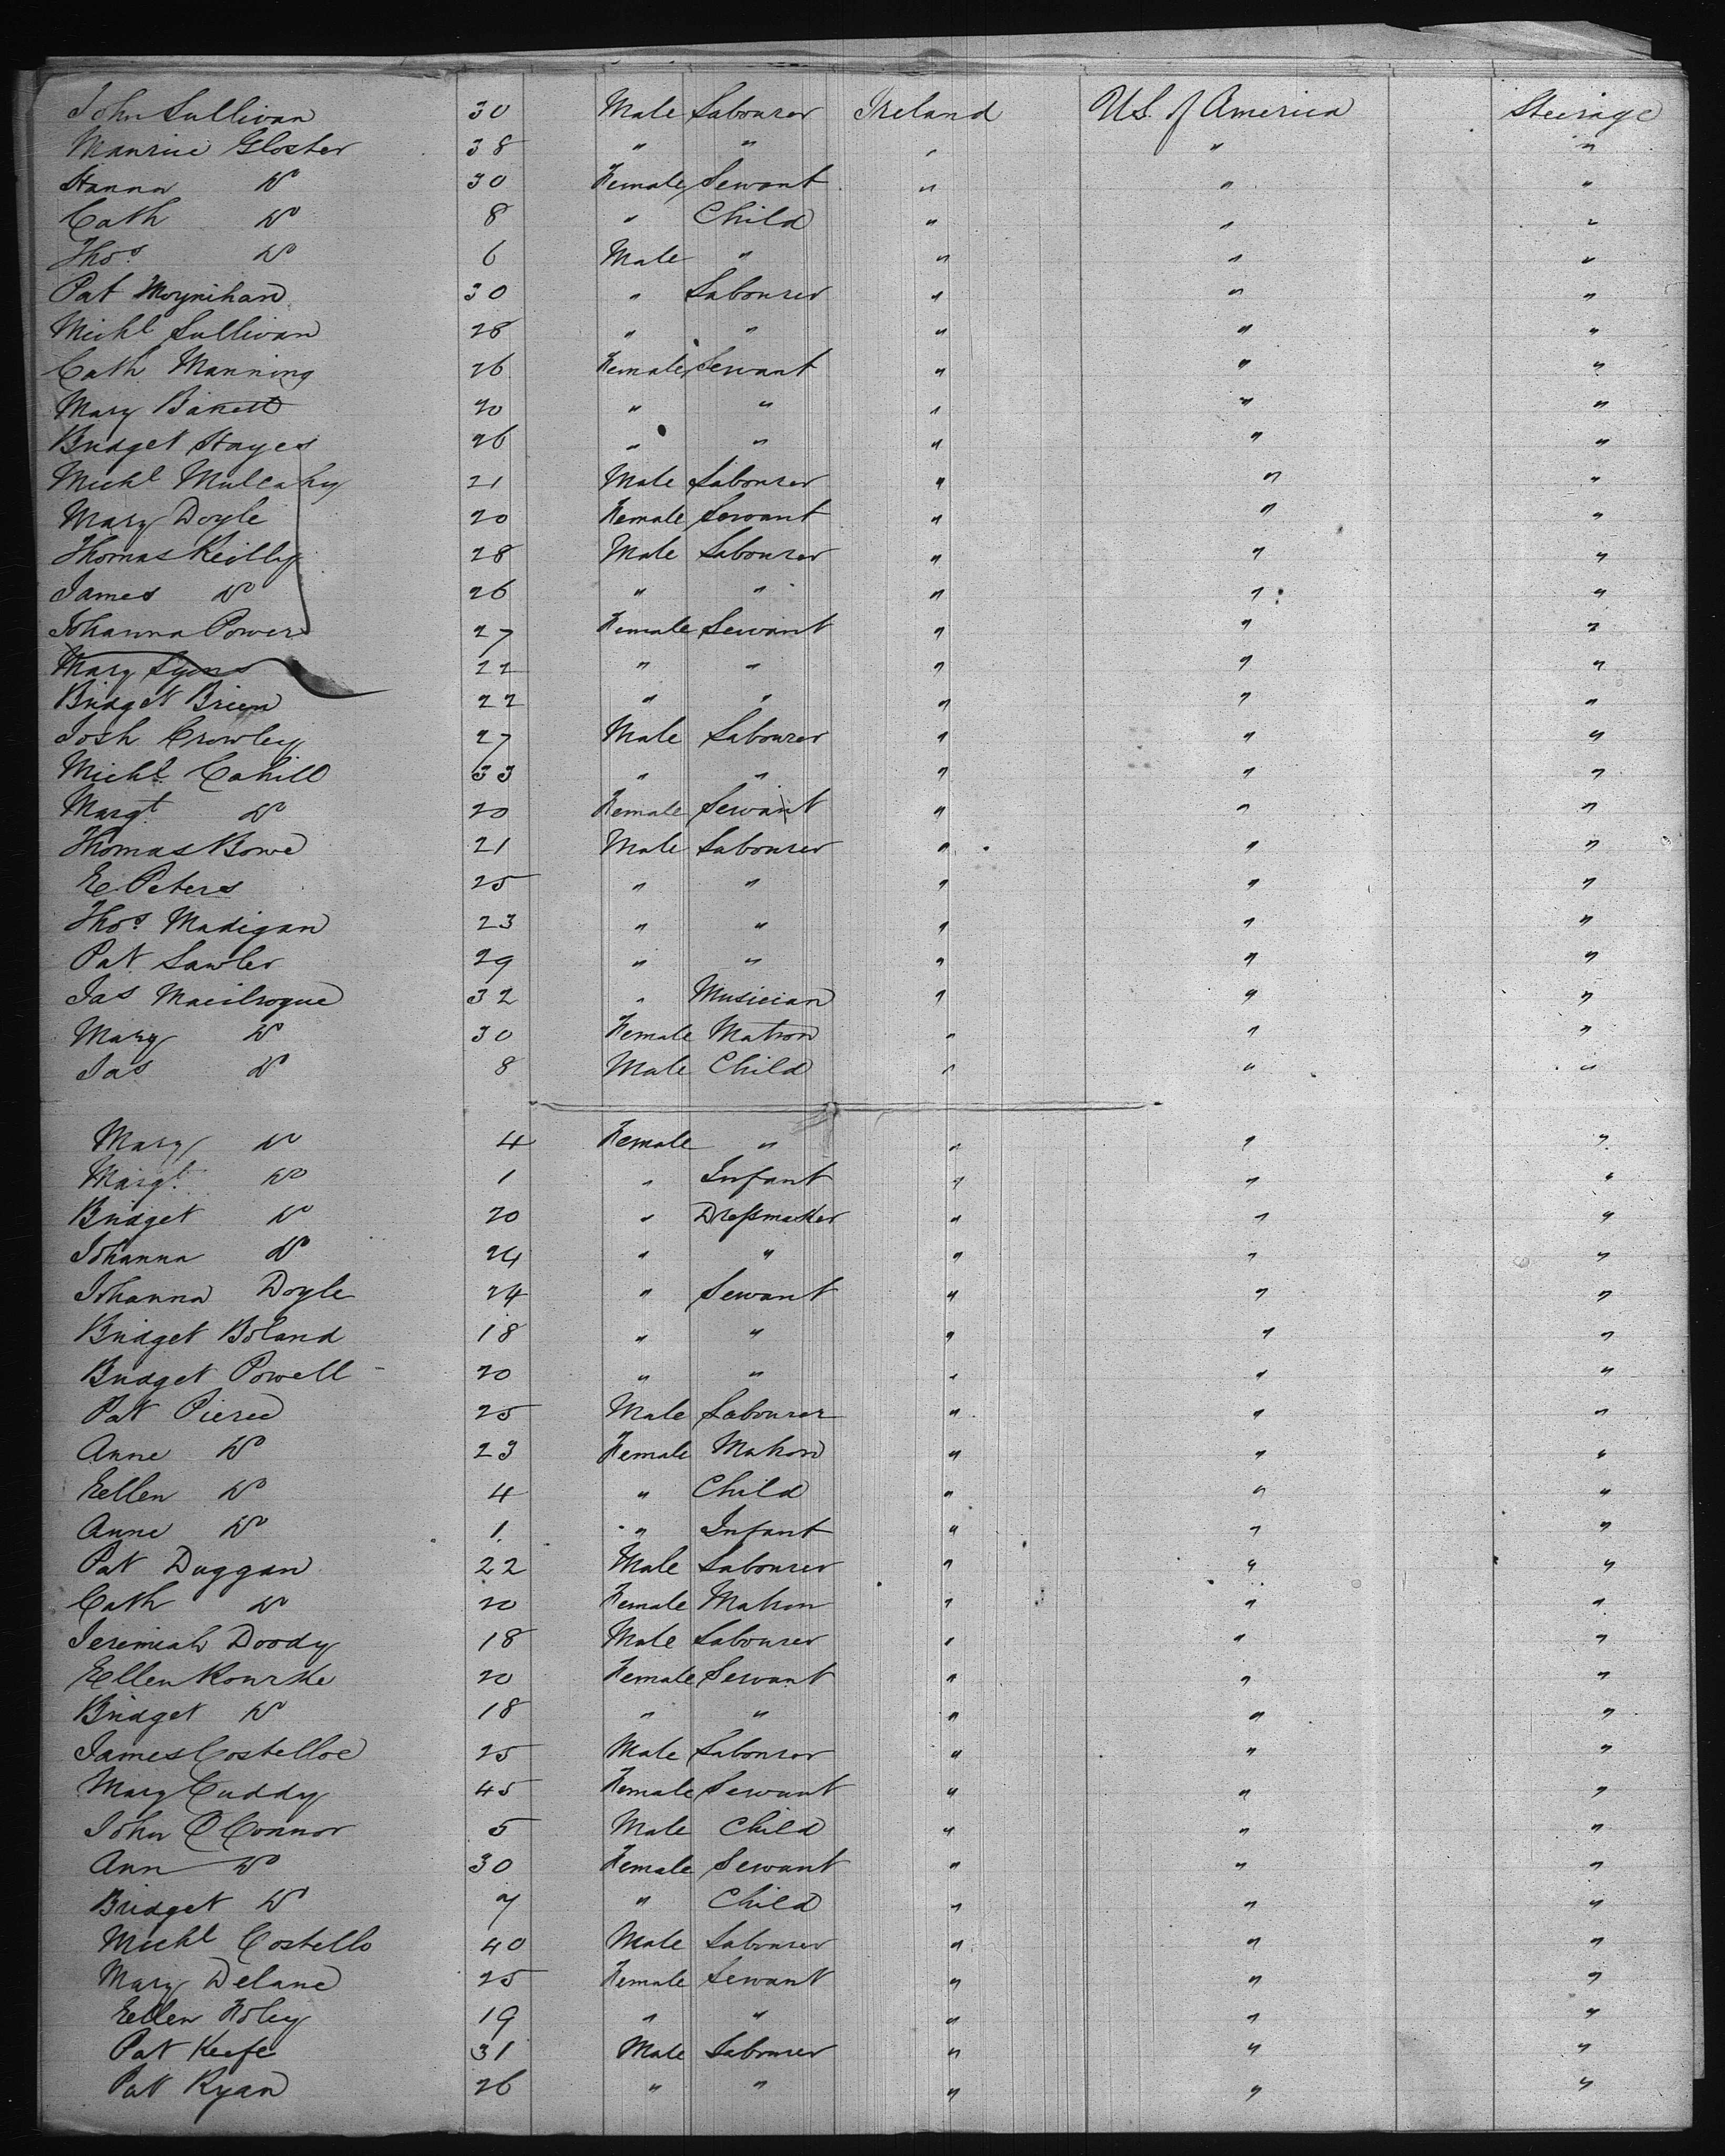 John Sullivan 30 Male Labourer Ireland U.S. of America Steerage
Maurice Gloster 38 " " " " "
Hanna Do 30 Female Servant " " "
Cath Do 8 " Child " " "
Thos. Do 6 Male " " " "
Pat Moynihan 30 " Labourer " " "
Michl Sullivan 28 " " " " "
Cath Manning 26 Female Servant " " "
Mary 20 " " " " "
Bridget Hayes 26 " " " " "
Michl Mulcahy 21 Male Labourer " " "
Mary Doyle 20 Female Servant " " "
Thomas Reilly 28 Male Labourer " " "
James Do 26 " " " " "
Johanna Power 27 Female Servant " " "
Mary Lyons 22 " " " " "
Bridget Brien 22 " " " " "
Josh Crowley 27 Male Labourer " " "
Michl. Cahill 33 " " " " "
Margt Do 20 Female Servant " " "
Thomas Bowe 21 Male Labourer " " "
E Peters 25 " " " " "
Thos. Madigan 23 " " " " "
Pat Lawler 29 " " " " "
Jas 32 " Musician " " "
Mary Do 30 Female Matron " " "
Jas Do 8 Male Child " " "
Mary Do 4 Female " " " "
Margt. Do 1 " Infant " " "
Bridget Do 20 " Dressmaker " " "
Johanna Do 24 " " " " "
Johanna Doyle 24 " Servant " " "
Bridget Boland 18 " " " " "
Bridget Powell 20 " " " " "
Pat Pierce 25 Male Labourer " " "
Anne Do 23 Female Matron " " "
Eellen Do 4 " Child " " "
Anne Do 1 " Infant " " "
Pat Duggan 22 Male Labourer " " "
Cath Do 20 Female Matron " " "
Jeremiah Doody 18 Male Labourer " " "
Ellen Rourke 20 Female Servant " " "
Bridget Do 18 " " " " "
James Costelloe 25 Male Labourer " " "
Mary Cuddy 45 Female Servant " " "
John O Connor 5 Male Child " " "
Ann Do 30 Female Servant " " "
Bridget Do 7 " Child " " "
Michl Costello 40 Male Labourer " " "
Mary Delane 25 Female Servant " " "
Eellen Foley 19 " " " " "
Pat Keefe 31 Male Labourer " " "
Pat Ryan 26 " " " " "